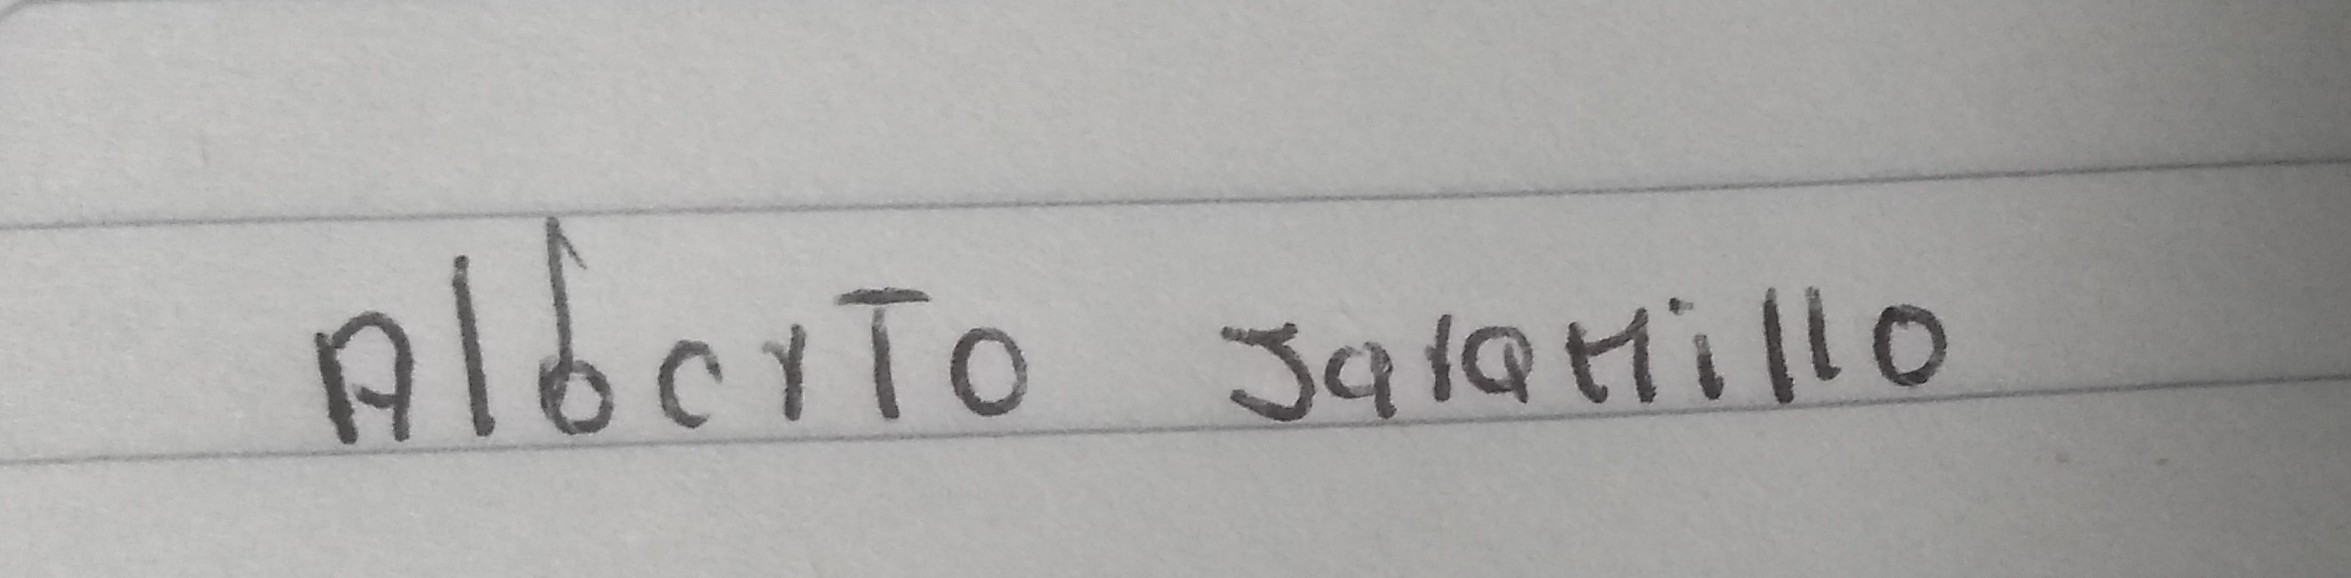 Alberto Jaramillo